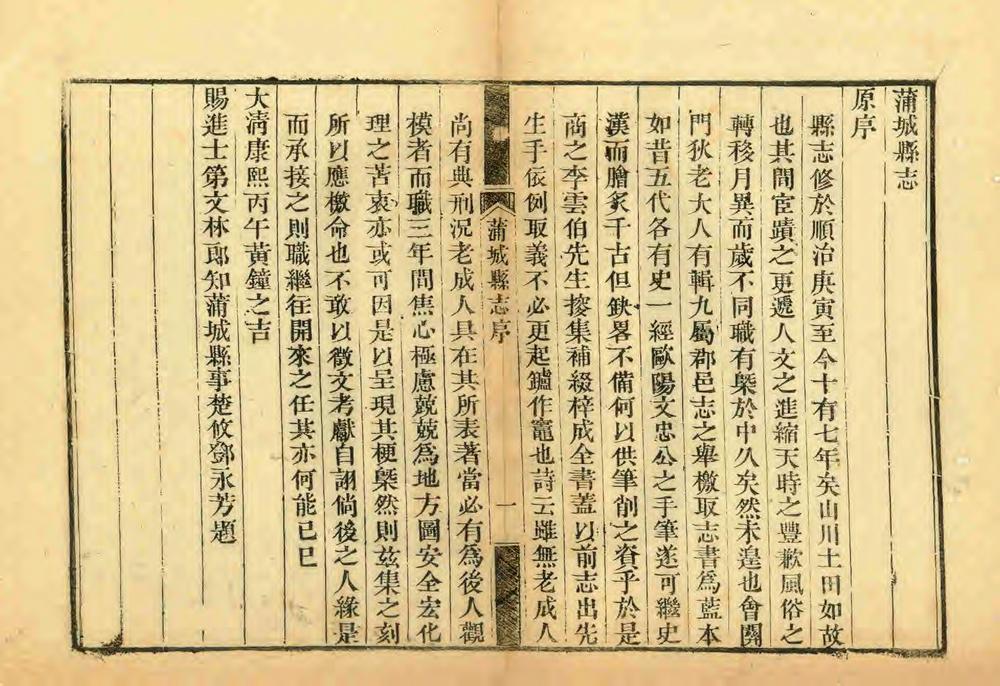 蒲城縣志
原序
縣志修於順治庚寅至今十有七年矣山川土田如故
也其間宦蹟之更遞人文之進縮天時之豐歉風俗之
轉移月異而歲不同職有槩於中久矣然未遑也會關
門狄老大人有輯九屬郡邑志之舉檄取志書爲藍本
如昔五代各有史一經歐陽文忠公之手筆遂可繼史
漢而膾炙千古但缺畧不備何以供筆削之資乎於是
商之李雲伯先生搜集補綴梓成全書蓋以前志出先
生手依例取義不必更起鑪作竈也詩云雖無老成人
蒲城縣志序
一
尚有典刑況老成人具在其所表著當必有爲後人觀
模者而職三年間焦心極慮兢兢爲地方圖安全宏化
理之苦衷亦或可因是以呈現其梗槩然則兹集之刻
所以應檄命也不敢以徵文考獻自詡倘後之人緣是
而承接之則職繼往開來之任其亦何能已已
大淸康熙丙午黃鐘之吉
賜進士第文林郎知蒲城縣事楚攸鄧永芳題